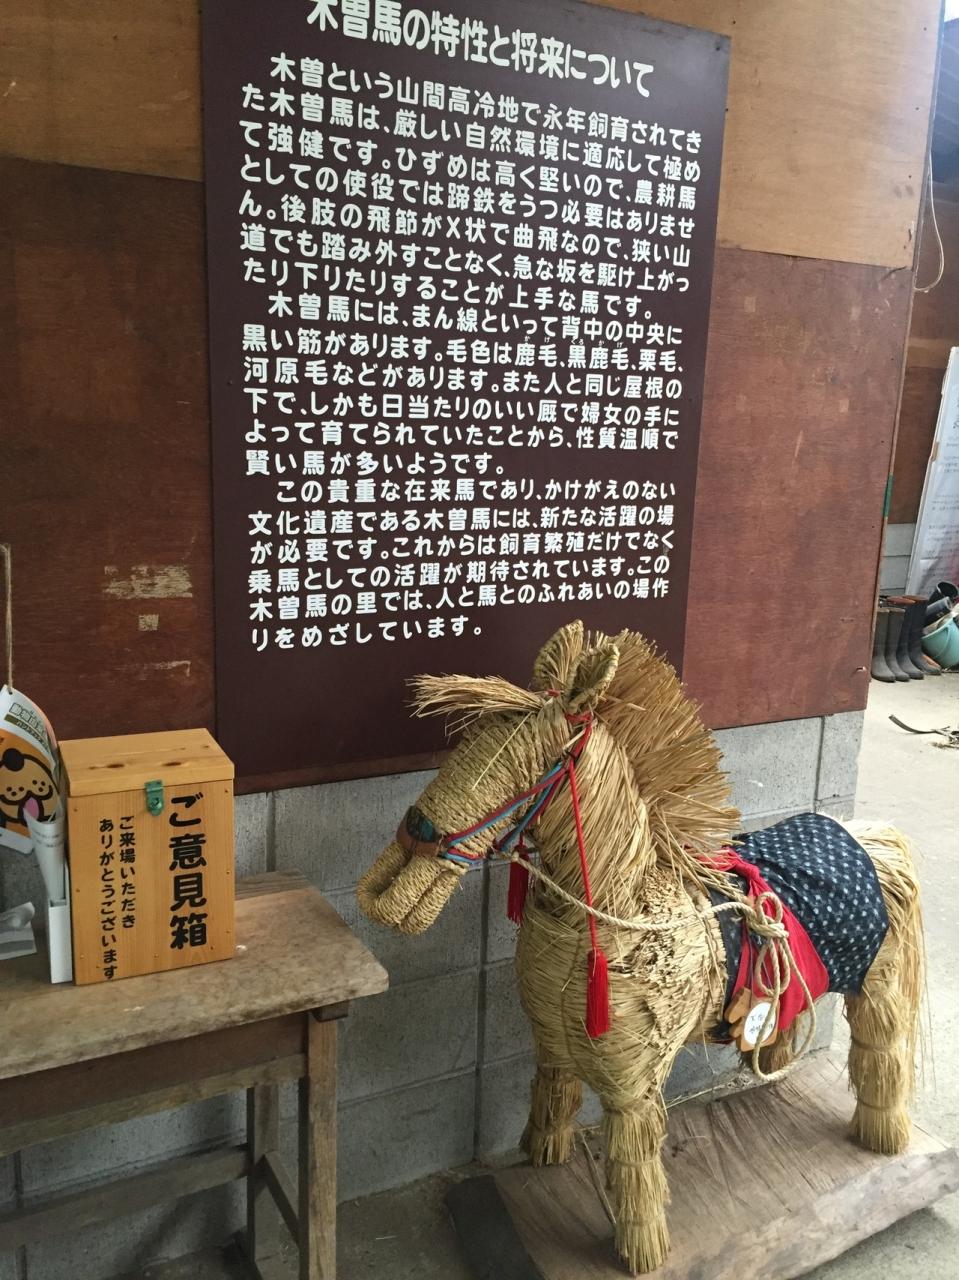 木曽馬の特性と将来について
木曽という山間高冷地で永年飼育されてき
た木曽馬は、厳しい自然環境に適応して極め
て強健です。ひずめは高く堅いので、農耕馬
としての使役では蹄鉄をうつ必要はありませ
ん。後肢の飛節がX状で曲飛なので、狭い山
道でも踏み外すことなく、急な坂を駆け上がっ
たり下りたりすることが上手な馬です。
木曽馬には、まん線といって背中の中央に
黒い筋があります。毛色は鹿毛、黒鹿毛、栗毛、
河原毛などがあります。また人と同じ屋根の
下で、しかも日当たりのいい厩で婦女の手に
よって育てられていたことから、性質温順で
賢い馬が多いようです。
この貴重な在来馬であり、かけがえのない
文化遺産である木曽馬には、新たな活躍の場
が必要です。これからは飼育繁殖だけでなく
乗馬としての活躍が期待されています。この
木曽馬の里では、人と馬とのふれあいの場作
りをめざしています。
ご意見箱
ご来場いただき
ありがとうございます